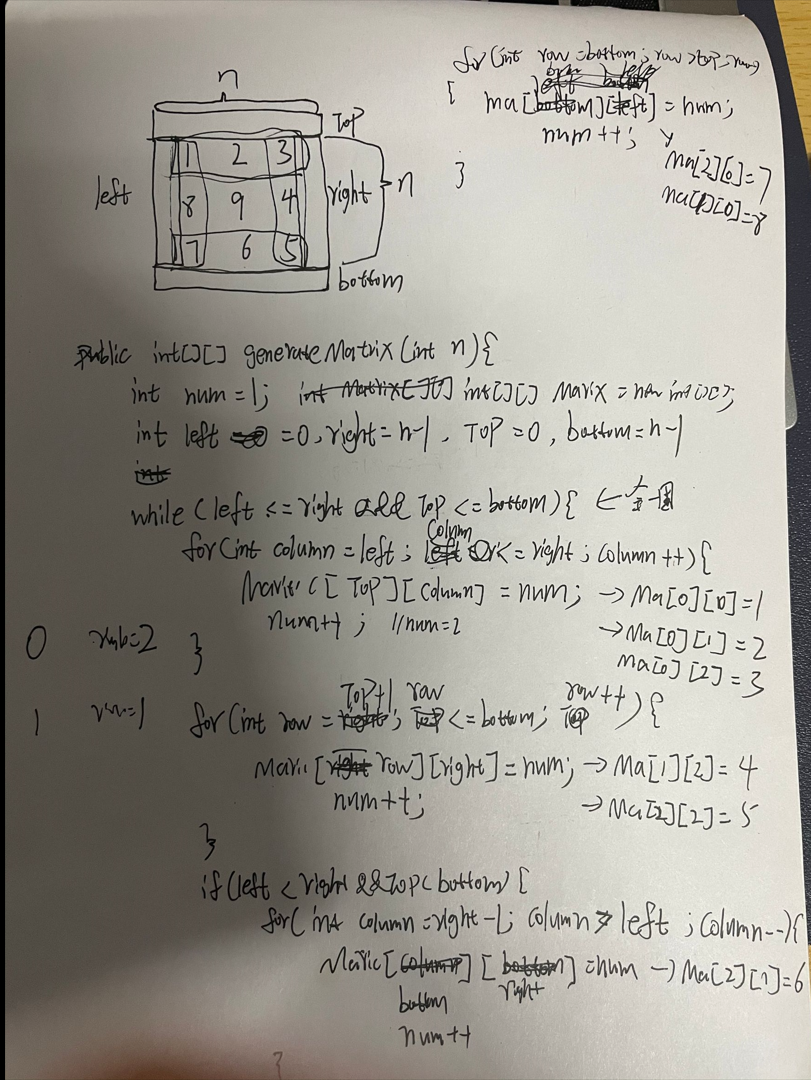 n
TOP
1 2 3
left
8 9 4
right
n
7 6 5
bottom
for(int row=bottom; row>top; row
{
ma[][left] = num;
num++;
}
Ma[2][0]=7
ma[1][0]=8
public int[][] generateMatrix(int n){
int num=1; int Matrix[][] int[][] Marix = new int[][];
int left =0, right=n-1, TOP=0, bottom=n-1
int
while (left <= right && TOP <= bottom){ ←
for(int column=left; column <= right; column++){
Marix[TOP][column] = num; → Ma[0][0]=1
num++; //num=2 → Ma[0][1]=2
Ma[0][2]=3
0 =2 }
1 =1 for(int row = TOP+1; row <= bottom; row++){
Maric[row][right]=num; → Ma[1][2]=4
num++; → Ma[2][2]=5
}
if(left < right && TOP< bottom){
for(int column=right-1; column > left; column--){
Maric[bottom][right]=num → Ma[2][1]=6
num++
}